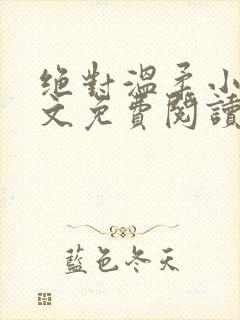 絕對溫柔小
文免費閱讀
藍色冬天